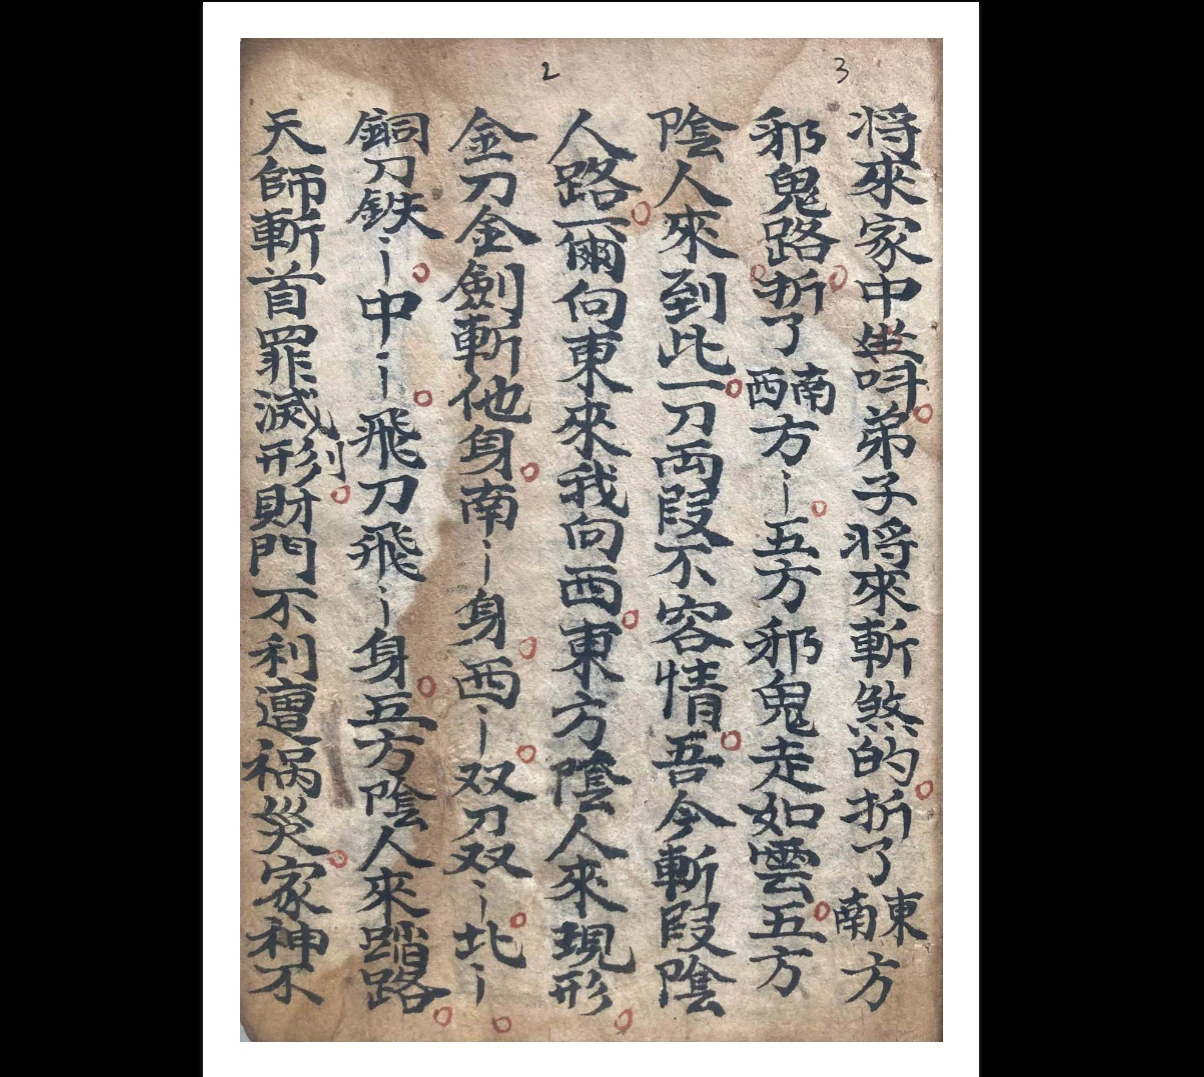 2 3
将來家中坐呌弟子将來斬煞的折了東南方
邪鬼路折了南西方〻五方邪鬼走如雲五方
陰人來到此一刀両叚不容情吾今斬叚陰
人路爾向東來我向西東方陰人來現形
金刀金劍斬他身南〻身西〻双刀双〻北〻
銅刀鉄〻中〻飛刀飛〻身五方陰人來踏路
天師斬首罪滅形別財門不利遭祸災家神不